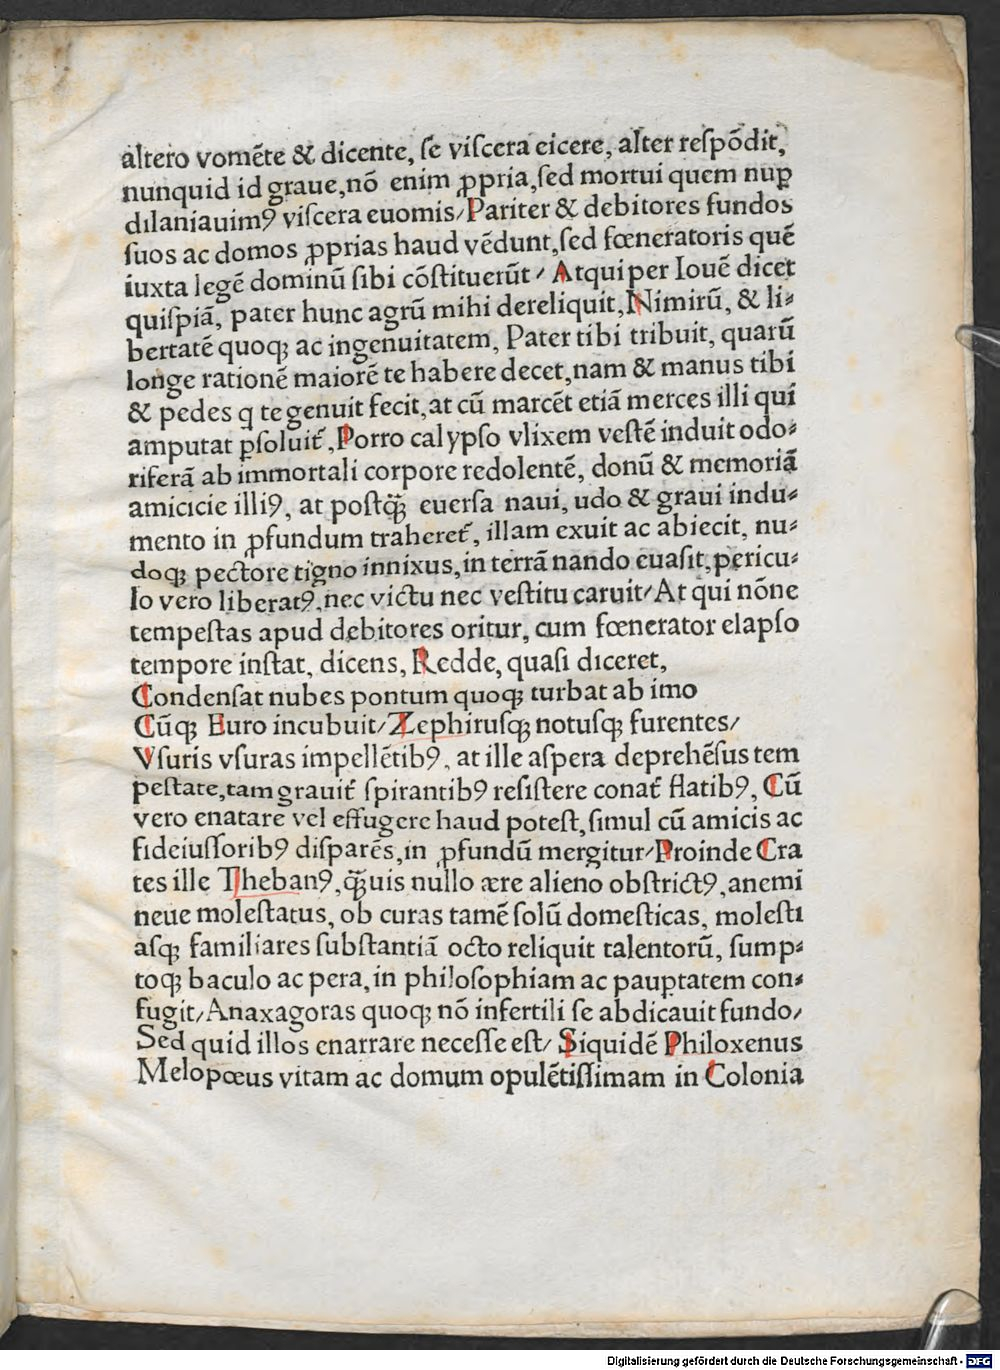 altero vomēte & dicente, ſe viſcera eicere, alter reſpōdit,
nunquid id graue, nō enim ꝓpria, ſed mortui quem nuꝑ
dilaniauimꝰ viſcera euomis/ Pariter & debitores fundos
ſuos ac domos ꝓprias haud vēdunt, ſed fœneratoris quē
iuxta legē dominū ſibi cōſtituerūt/ Atqui per Iouē dicet
quiſpiā, pater hunc agrū mihi dereliquit, Nimirū, & li⸗
bertatē quoqꝫ ac ingenuitatem, Pater tibi tribuit, quarū
longe rationē maiorē te habere decet, nam & manus tibi
& pedes q te genuit fecit, at cū marcēt etiā merces illi qui
amputat ꝑſoluit᷑, Porro calypſo vlixem veſtē induit odo⸗
riferā ab immortali corpore redolentē, donū & memoriā
amicicie illiꝰ, at poſtꝗ̃ euerſa naui, udo & graui indu⸗
mento in ꝓfundum traheret᷑, illam exuit ac abiecit, nu⸗
doqꝫ pectore tigno innixus, in terrā nando euaſit, pericu⸗
lo vero liberatꝰ, nec victu nec veſtitu caruit/ At qui nōne
tempeſtas apud debitores oritur, cum fœnerator elapſo
tempore inſtat, dicens, Redde, quaſi diceret,
Condenſat nubes pontum quoqꝫ turbat ab imo
Cūqꝫ Euro incubuit/ Zephiruſqꝫ notuſqꝫ furentes/
Vſuris vſuras impellētibꝰ, at ille aſpera deprehēſus tem
peſtate, tam grauit᷑ ſpirantibꝰ reſiſtere conat᷑ flatibꝰ, Cū
vero enatare vel effugere haud poteſt, ſimul cū amicis ac
fideiuſſoribꝰ diſparēs, in ꝓfundū mergitur/ Proinde Cra
tes ille Thebanꝰ, ꝗ̃uis nullo ære alieno obſtrictꝰ, anemi
neue moleſtatus, ob curas tamē ſolū domeſticas, moleſti
aſqꝫ familiares ſubſtantiā octo reliquit talentorū, ſump⸗
toqꝫ baculo ac pera, in philoſophiam ac pauꝑtatem con⸗
fugit/ Anaxagoras quoqꝫ nō infertili ſe abdicauit fundo/
Sed quid illos enarrare neceſſe eſt/ Siquidē Philoxenus
Melopœus vitam ac domum opulētiſſimam in Colonia
Digitalisierung gefördert durch die Deutsche Forschungsgemeinschaft - DFG